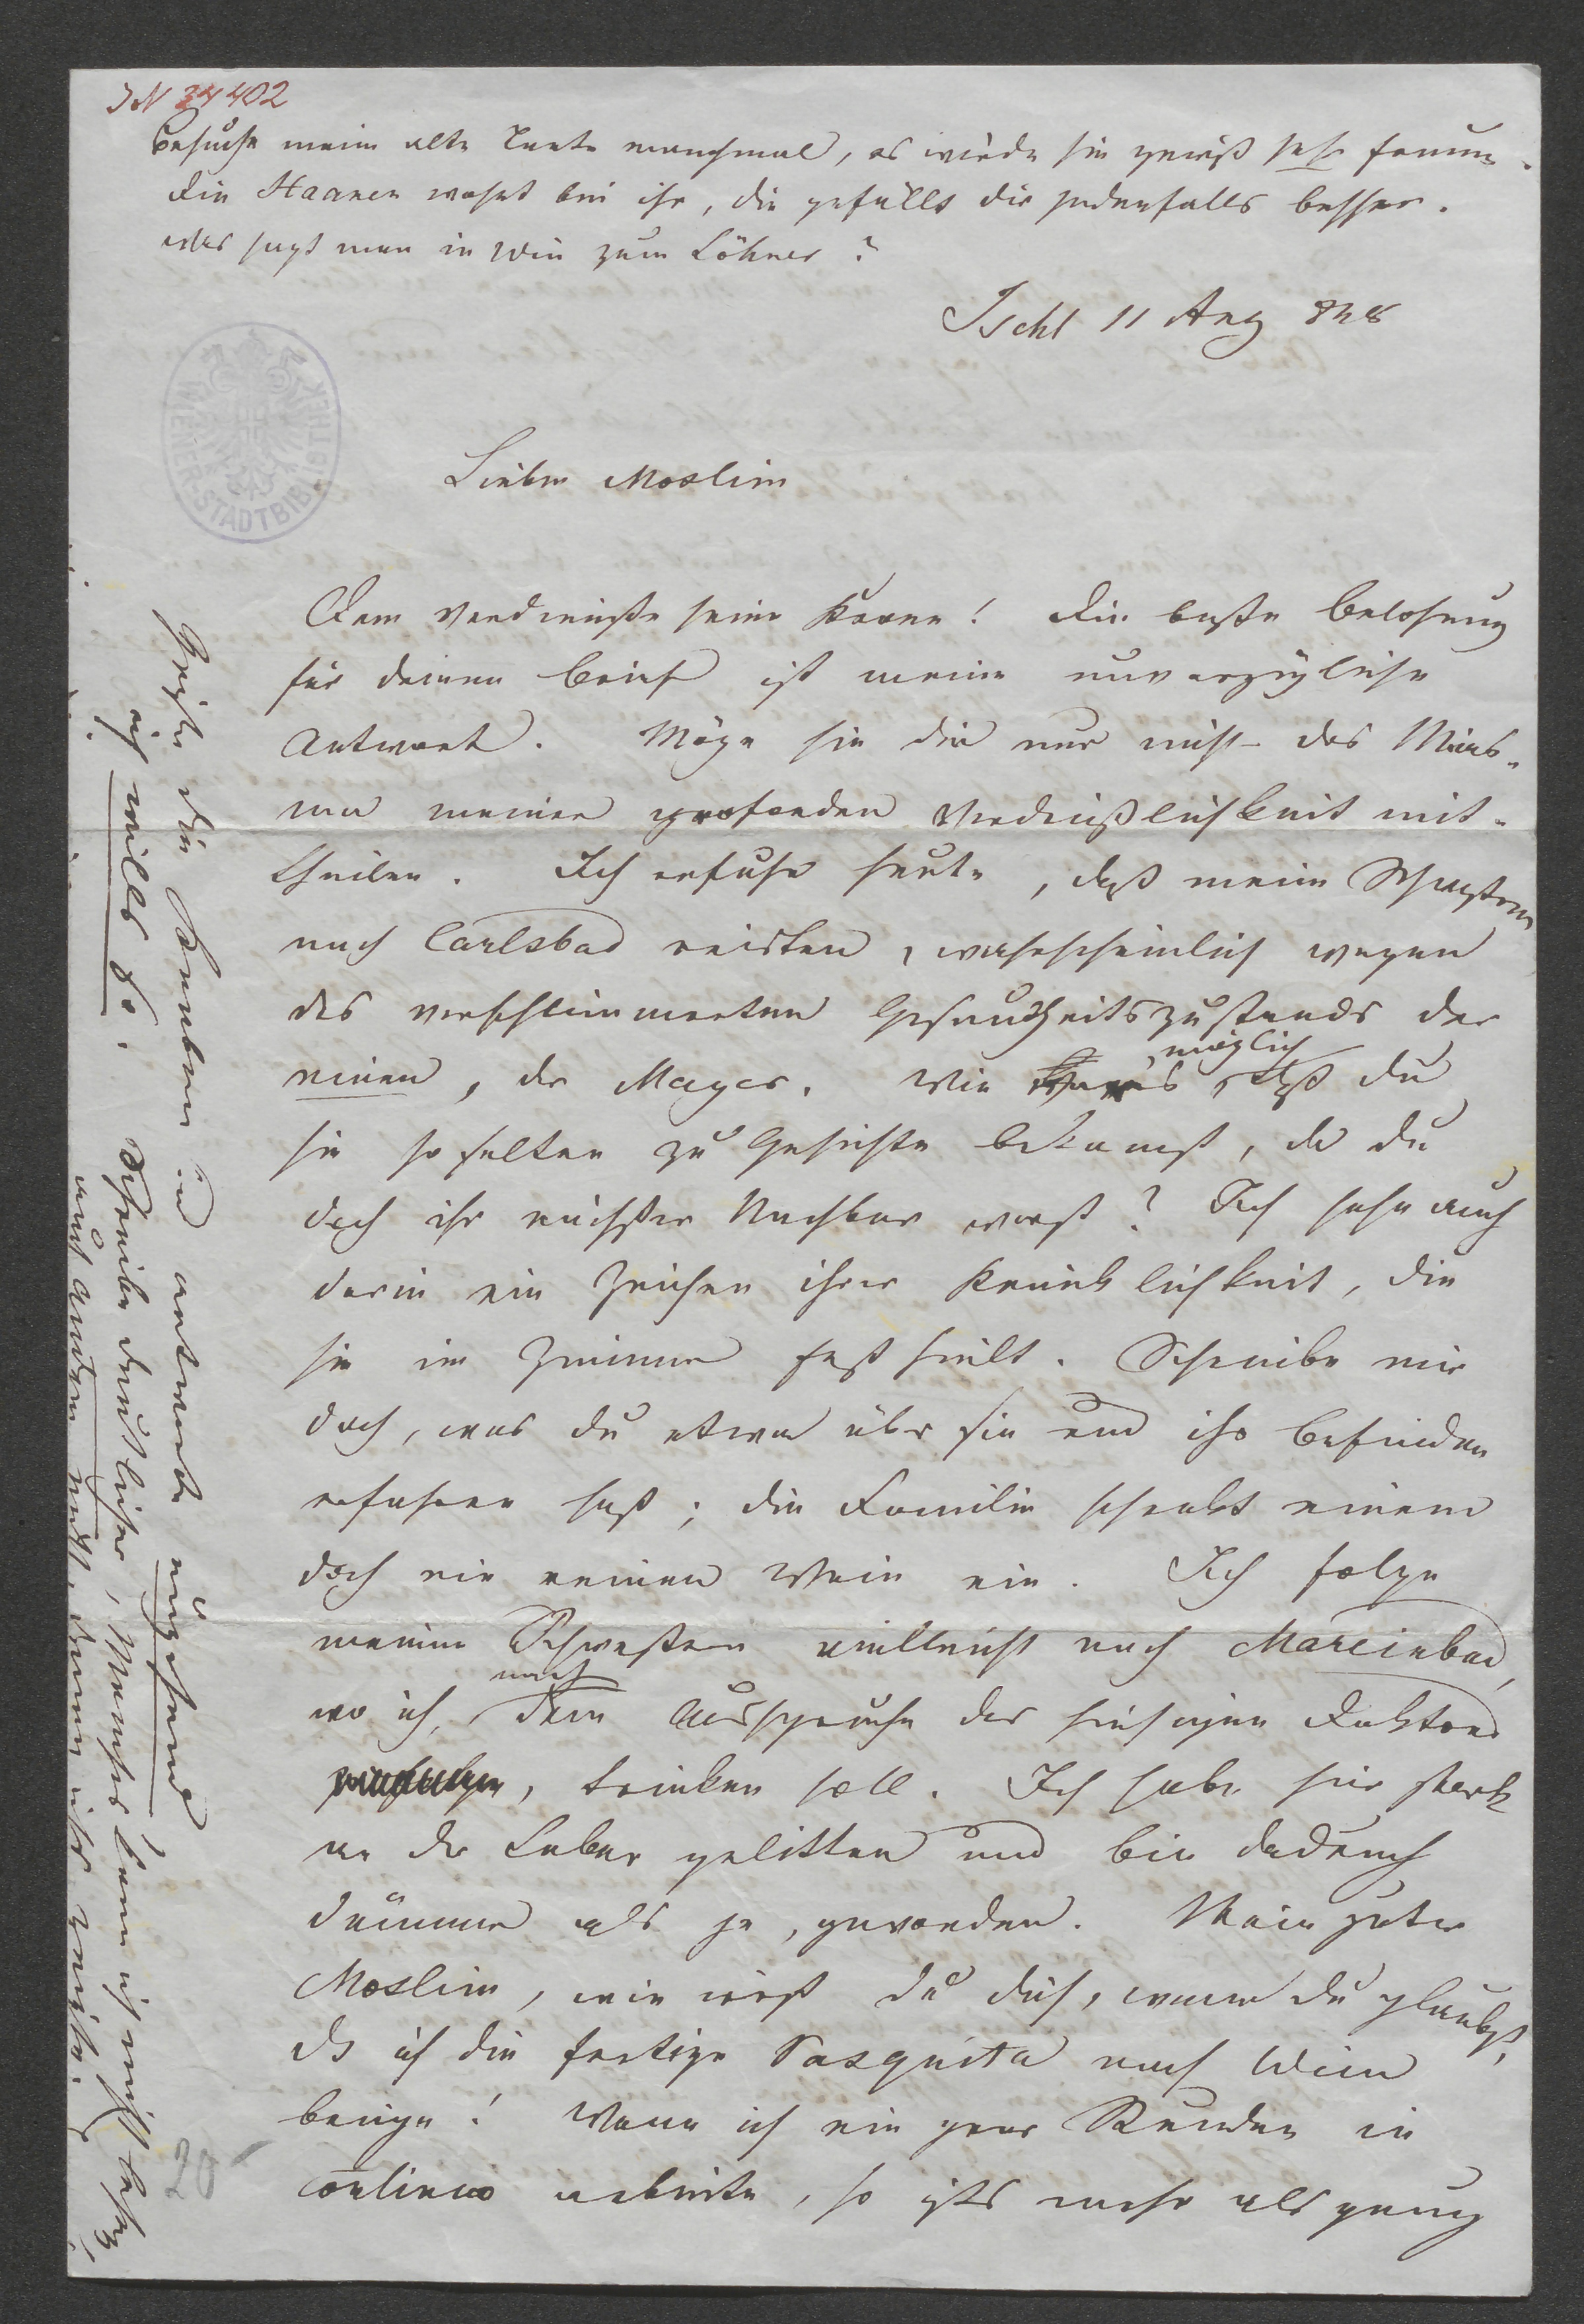 JN 34402
Besuche meine alte Tante manchmal, es würde sie gewiß sehr freuen.
Die Haanen wohnt bei ihr, die gefällt dir jedenfalls besser.
Was sagt man in Wien zum Löhner?
Ischl 11 Aug 848
WIENER STADTBIBLIOTHEK
Lieber Moslim
Dem Verdienste seine Krone! Die beste Belohnung
für deinen Brief ist meine unverzügliche
Antwort. Möge sie dir nur nicht das Mias-
ma meiner profonden Verdrießlichkeit mit-
theilen. Ich erfuhr heute, daß meine Schwestern
nach Carlsbad reisten, wahrscheinlich wegen
des verschlimmerten Gesundheitszustands der
einen, der Mayer. Wie möglich, daß du
sie so selten zu Gesichte bekamst, da du
doch ihr nächster Nachbar warst? Ich sehe auch
darin ein Zeichen ihrer Kränklichkeit, die
sie im Zimmer fest hielt. Schreibe mir
doch, was du etwa über sie und ihr Befinden
erfahren hast; die Familie schenkt einem
doch nie reinen Wein ein. Ich folge
meinen Schwestern vielleicht nach Marienbad,
wo ich, nach dem Ausspruche der hiesigen Doktoren
, trinken soll. Ich habe hier stark
an der Leber gelitten und bin dadurch
dümmer als je, geworden. Mein guter
Moslim, wie irrst du dich, wenn du glaubst,
daß ich die fertige Pasquita nach Wien
bringe! Wenn ich ein paar Stunden in
continuo arbeite, so ists mehr als genug
Grüße die Freuben und antworte umgehend
ich will's so. Schreibe deutlicher, Mancher kann ich nicht lesen,
auch Andre nicht, denen ich's zeigte.
20